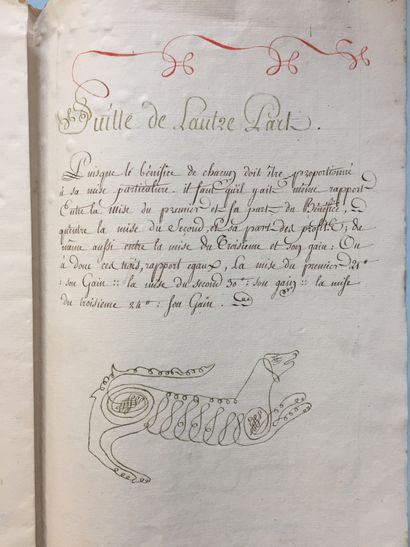 Suille de Lautre Part.
Puisque le bénéfice de chacun doit être proportionné
à sa mise particuliere. il faut qu'il y ait même rapport
Entre la Mise du premier et sa part du Bénéfice, &
qu'entre la mise du Second, et sa part des profits; de
même aussi entre la mise du Troisieme et son gain: On
à donc ces trois, rapport egaux, La mise du premier 21#
: son Gain :: la mise du second 30#: son gain :: la mise
du troisieme 24#: son Gain.